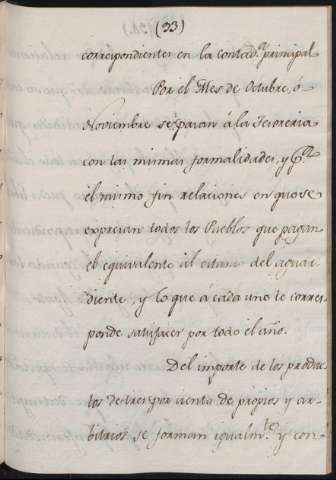 (33)
correspondientes en la contad.ª principal
Por el Mes de Octubre, ó
Noviembre se pasan á la Tesoreria
con las mismas formalidades, y p.ª
el mismo fin relaciones en que se
expresan todos los Pueblos que pagan
el equivalente al estanco del aguar
diente, y lo que á cada uno le corres
ponde satisfacer por todo el año.
Del importe de los produc
tos de tres por ciento de propios y ar-
bitrios se forman igualm.te y con